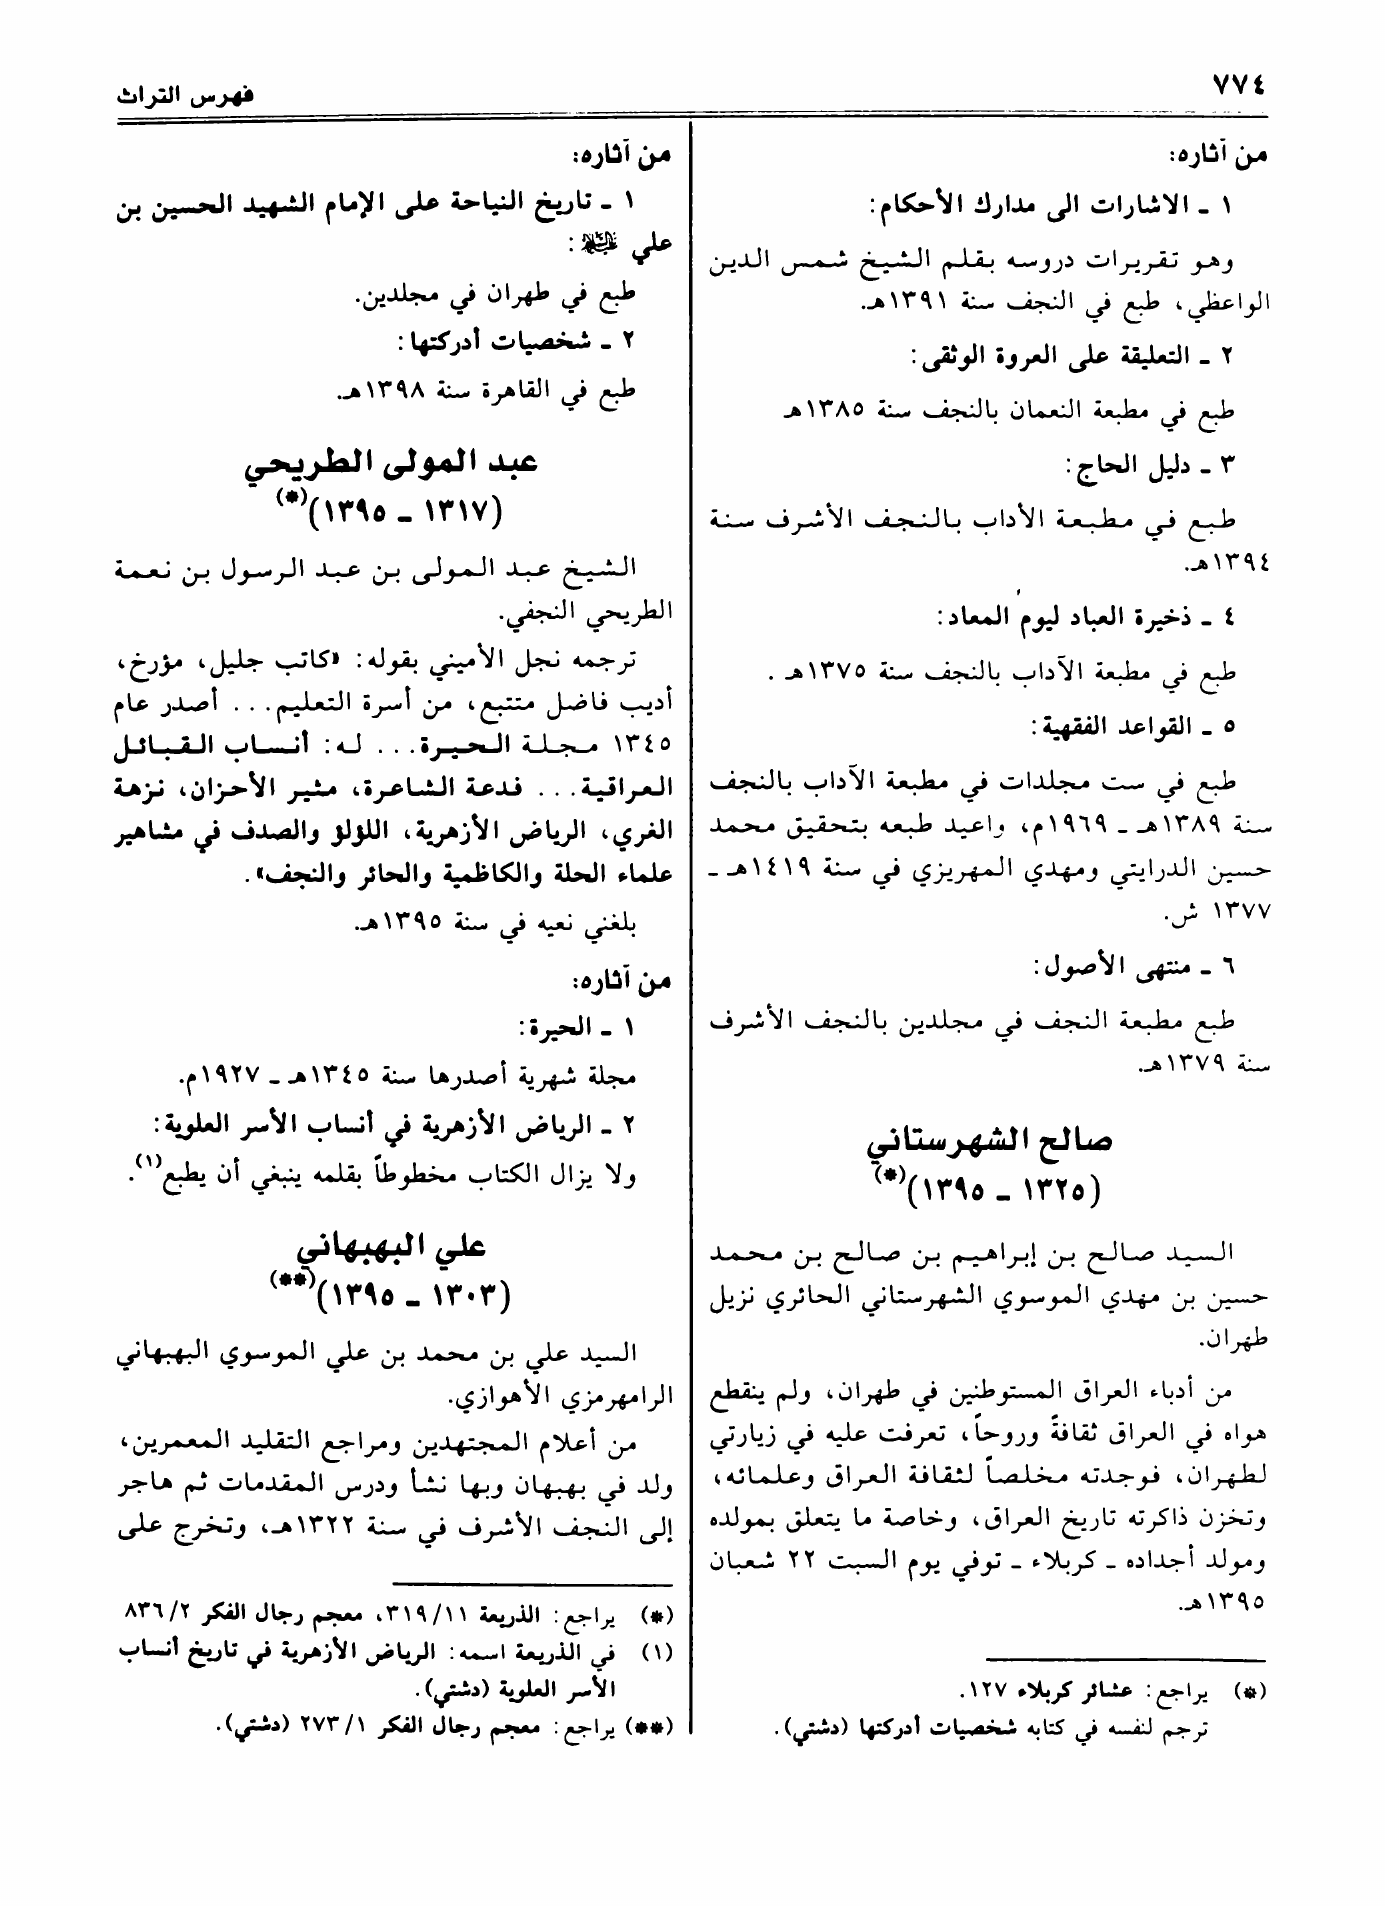 ٧٧٤
فهرس التراث
من آثاره:
١ ـ الاشارات الى مدارك الأحكام:
وهو تقريرات دروسه بقلم الشيخ شمس الدين
الواعظي، طبع في النجف سنة ١٣٩١هـ.
٢ ـ التعليقة على العروة الوثقى:
طبع في مطبعة النعمان بالنجف سنة ١٣٨٥هـ
٣ ـ دليل الحاج:
طبع في مطبعة الأداب بالنجف الأشرف سنة
١٣٩٤هـ.
٤ ـ ذخيرة العباد ليوم المعاد:
طبع في مطبعة الآداب بالنجف سنة ١٣٧٥هـ .
٥ ـ القواعد الفقهية:
طبع في ست مجلدات في مطبعة الآداب بالنجف
سنة ١٣٨٩هـ ـ ١٩٦٩م، واعيد طبعه بتحقيق محمد
حسين الدرايتي ومهدي المهريزي في سنة ١٤١٩هـ ـ
١٣٧٧ ش.
٦ ـ منتهى الأصول:
طبع مطبعة النجف في مجلدين بالنجف الأشرف
سنة ١٣٧٩هـ.
صالح الشهرستاني
(١٣٢٥ ـ ١٣٩٥)(*)
السيد صالح بن إبراهيم بن صالح بن محمد
حسين بن مهدي الموسوي الشهرستاني الحائري نزيل
طهران.
من أدباء العراق المستوطنين في طهران، ولم ينقطع
هواه في العراق ثقافةً وروحاً، تعرفت عليه في زيارتي
لطهران، فوجدته مخلصاً لثقافة العراق وعلمائه،
وتخزن ذاكرته تاريخ العراق، وخاصة ما يتعلق بمولده
ومولد أجداده ـ كربلاء ـ توفي يوم السبت ٢٢ شعبان
١٣٩٥هـ.
(*) يراجع: عشائر كربلاء ١٢٧.
ترجم لنفسه في كتابه شخصيات أدركتها (دشتي).
من آثاره:
١ ـ تاريخ النياحة على الإمام الشهيد الحسين بن
علي عليه السلام:
طبع في طهران في مجلدين.
٢ ـ شخصيات أدركتها:
طبع في القاهرة سنة ١٣٩٨هـ.
عبد المولى الطريحي
(١٣١٧ ـ ١٣٩٥)(*)
الشيخ عبد المولى بن عبد الرسول بن نعمة
الطريحي النجفي.
ترجمه نجل الأميني بقوله: «كاتب جليل، مؤرخ،
أديب فاضل متتبع، من أسرة التعليم... أصدر عام
١٣٤٥ مجلة الحيرة... له: أنساب القبائل
العراقية... فدعة الشاعرة، مثير الأحزان، نزهة
الغري، الرياض الأزهرية، اللؤلؤ والصدف في مشاهير
علماء الحلة والكاظمية والحائر والنجف».
بلغني نعيه في سنة ١٣٩٥هـ.
من آثاره:
١ ـ الحيرة:
مجلة شهرية أصدرها سنة ١٣٤٥هـ ـ ١٩٢٧م.
٢ ـ الرياض الأزهرية في أنساب الأسر العلوية:
ولا يزال الكتاب مخطوطاً بقلمه ينبغي أن يطبع(١).
علي البهبهاني
(١٣٠٣ ـ ١٣٩٥)(**)
السيد علي بن محمد بن علي الموسوي البهبهاني
الرامهرمزي الأهوازي.
من أعلام المجتهدين ومراجع التقليد المعمرين،
ولد في بهبهان وبها نشأ ودرس المقدمات ثم هاجر
إلى النجف الأشرف في سنة ١٣٢٢هـ، وتخرج على
(*) يراجع: الذريعة ٣١٩/١١، معجم رجال الفكر ٨٣٦/٢
(١) في الذريعة اسمه: الرياض الأزهرية في تاريخ أنساب
الأسر العلوية (دشتي).
(**) يراجع: معجم رجال الفكر ٢٧٣/١ (دشتي).